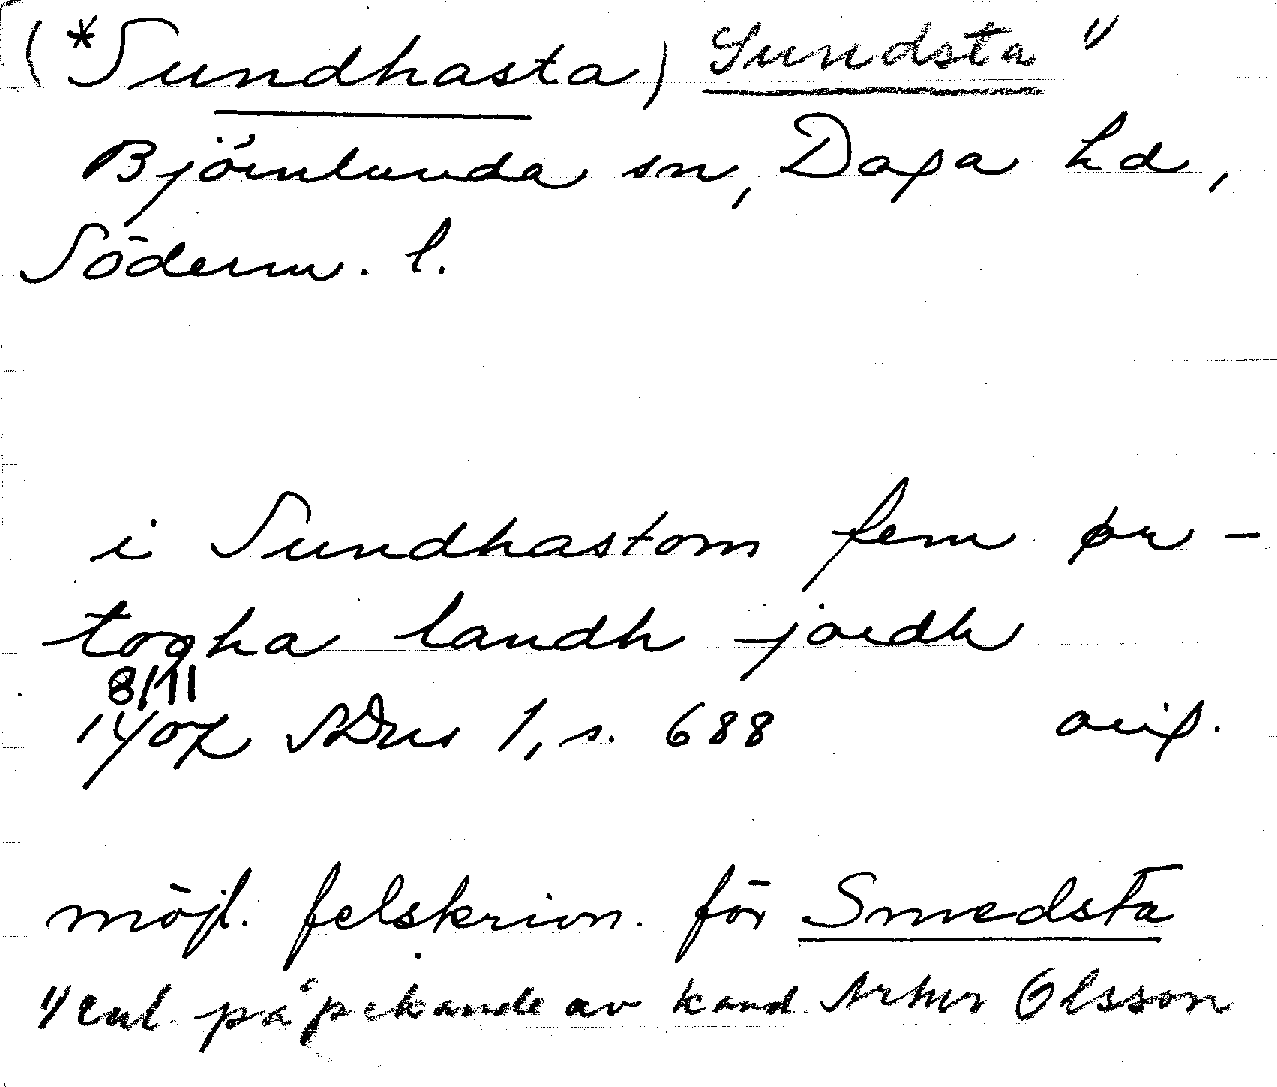 (*Sundhasta) Sundsta 1)
Björnlunda sn, Daga hd,
Söderm. l.
i Sundhastom fem ør-
togha landh jordh
8/11
1407 SDns 1, s. 688 orig.
möjl. felskrivn. för Smedsta
1) enl. påpekande av kand Artur Olsson